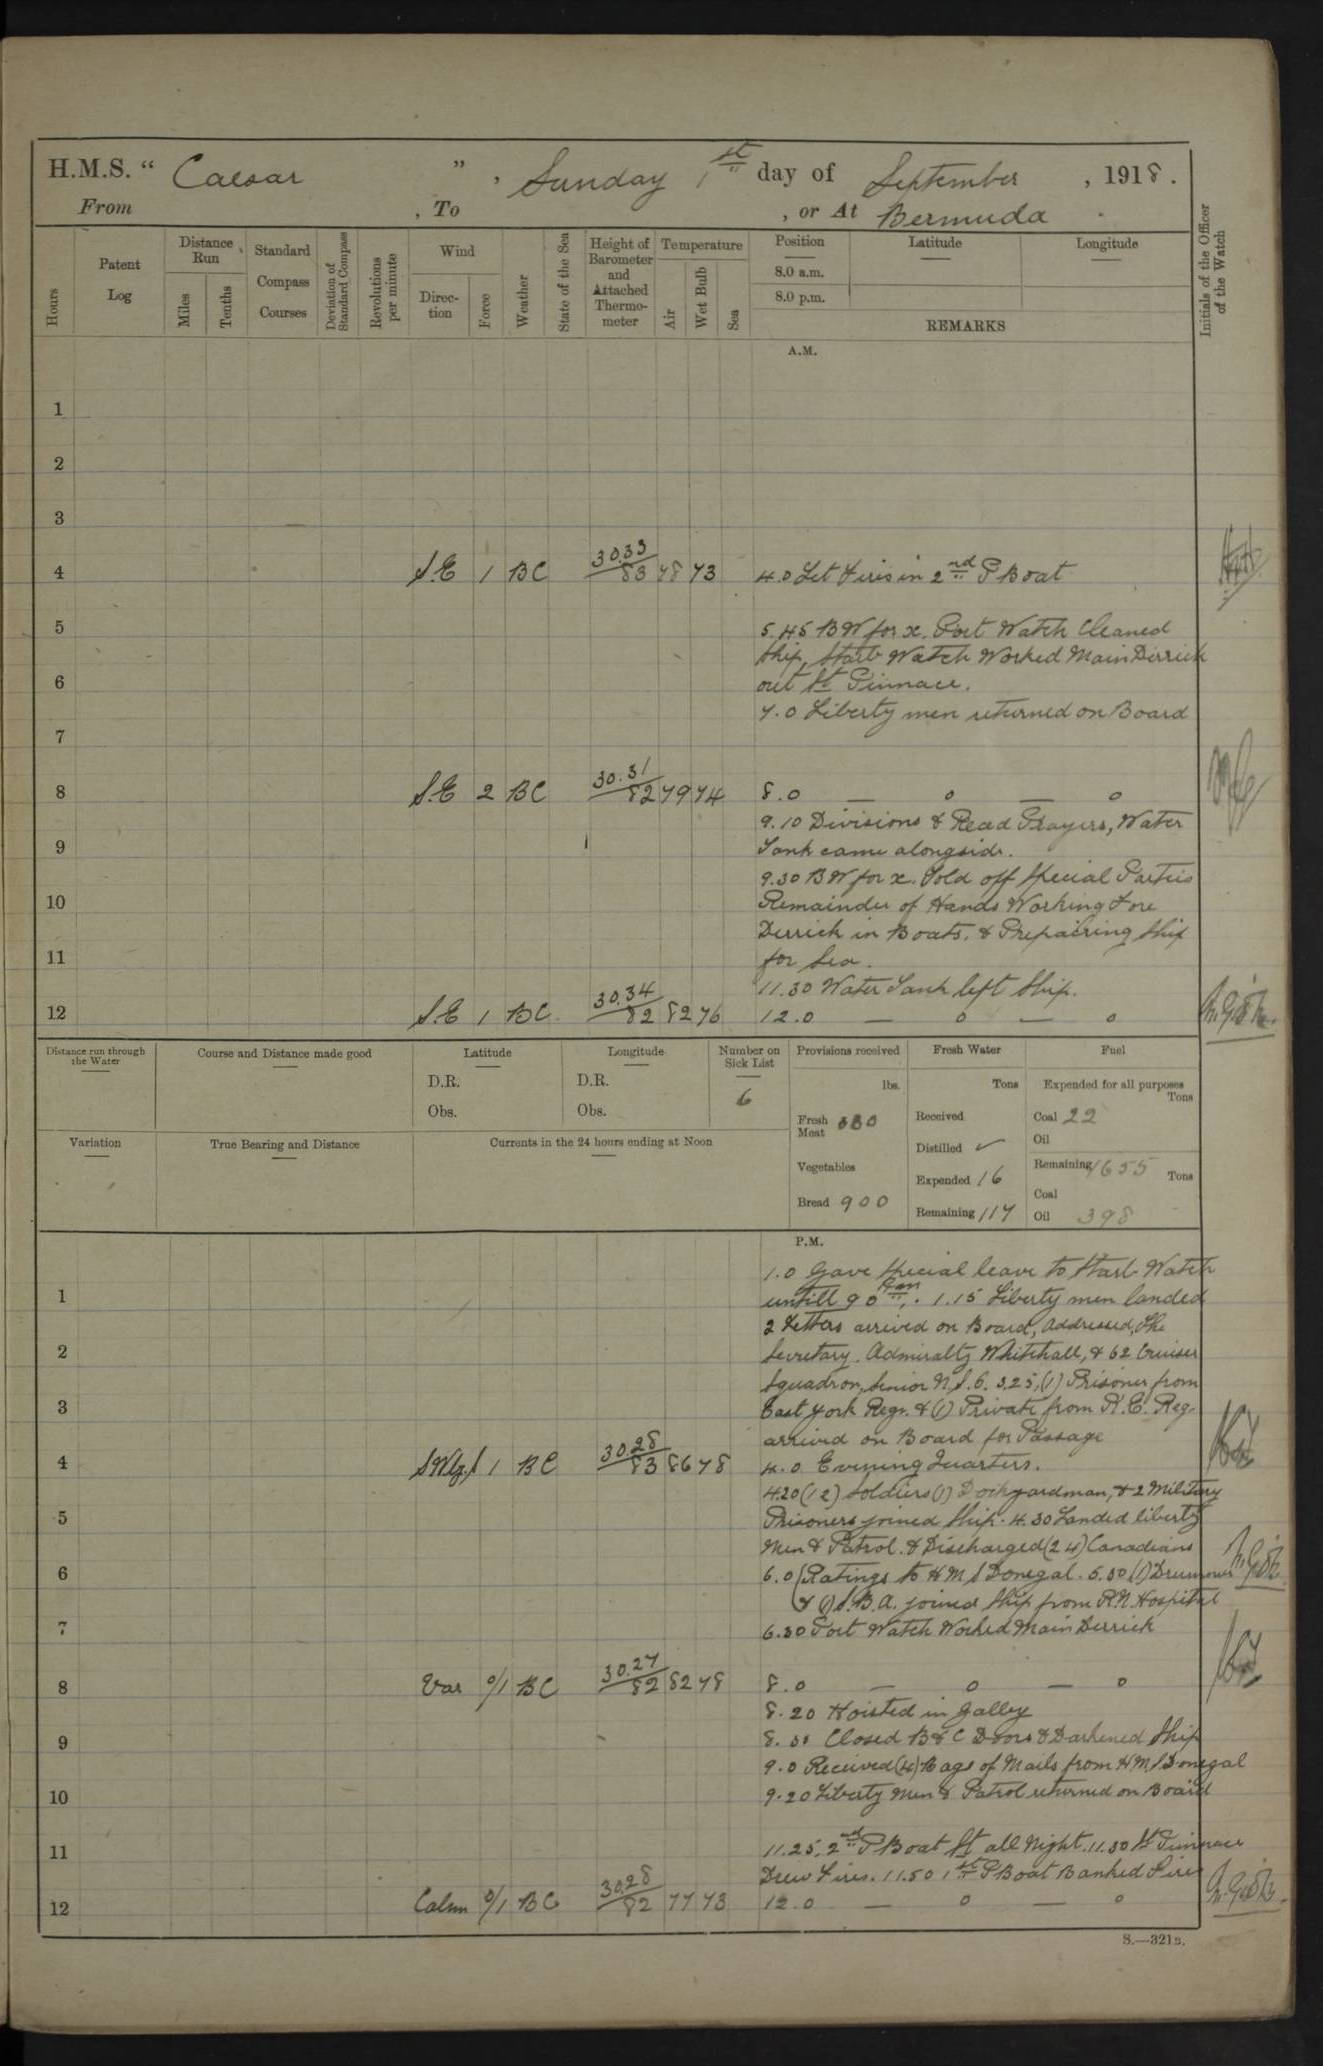 H.M.S. " Caesar " , Sunday 1st day of September , 1918 .
From , To , or At Bermuda .
Hours
Patent Log
Distance Run
Miles
Tenths
Standard Compass Courses
Deviation of Standard Compass
Revolutions per minute
Wind
Direction
Force
Weather
State of the Sea
Height of Barometer and Attached Thermometer
Temperature
Air
Wet Bulb
Sea
Position Latitude Longitude
8.0 a.m.
8.0 p.m.
REMARKS
Initials of the Officer of the Watch
A.M.
1
2
3
4 S.E 1 BC 30.33 83 78 73 4.0 Let Fires in 2nd P Boat
5 5.45 BW for x. Port Watch Cleaned
Ship, Starb Watch Worked Main Derrick
6 out St Pinnace.
7.0 Liberty men returned on Board
7
8 S.E 2 BC 30.31 82 79 74 8.0 — o — o
9.10 Divisions & Read Prayers, Water
9 Tank came alongside.
9.30 BW for x. Told off Special Parties
10 Remainder of Hands Working Fore
Derrick in Boats. & Prepairing Ship
11 for Sea.
11.30 Water Tank left Ship.
12 S.E 1 BC 30.34 82 82 76 12.0 — o — o
Distance run through the Water
Course and Distance made good
Latitude
D.R.
Obs.
Longitude
D.R.
Obs.
Number on Sick List
6
Provisions received
lbs.
Fresh Meat
Vegetables
Bread 900
Fresh Water
Tons
Received
Distilled ✓
Expended 16
Remaining 117
Fuel
Expended for all purposes
Tons
Coal 22
Oil
Remaining 1655 Tons
Coal
Oil 398
Variation
True Bearing and Distance
Currents in the 24 hours ending at Noon
P.M.
1.0 Gave Special leave to Starb Watch
1 untill 9 0 . 1.15 Liberty men landed
2 Letters arrived on Board, Addressed, The
2 Secretary. Admiralty Whitehall, & 62 Cruiser
Squadron, Senior N.S.O. 325, (1) Prisoner from
3 East York Regr. & (1) Private from R.E. Reg.
arrived on Board for Passage
4 SWly. 1 BC 30.28 83 86 78 4.0 Evening Quarters.
4.20 (12) Soldiers (1) Dockyardman, & 2 Military
5 Prisoners joined Ship. 4.30 Landed liberty
Men & Patrol. & Discharged (24) Canadians
6 6.0 (Ratings to HMS Donegal. 5.30 (1) Drummer
& (1) S.B.A. joined Ship from R.N. Hospital
7 6.30 Port Watch Worked Main Derrick
8 Var 0/1 BC 30.27 82 82 78 8.0 — o — o
8.20 Hoisted in Galley
9 8.30 Closed B & C Doors & Darkened Ship
9.0 Received (4) Bags of Mails from HMS Donegal
10 9.20 Liberty Men & Patrol returned on Board
11 11.25. 2nd P Boat St all Night. 11.30 St Pinnace
Drew Fires. 11.50 1st P Boat Banked Fires
12 Calm 0/1 BC 30.28 82 77 73 12.0 — o — o
S.—321B.